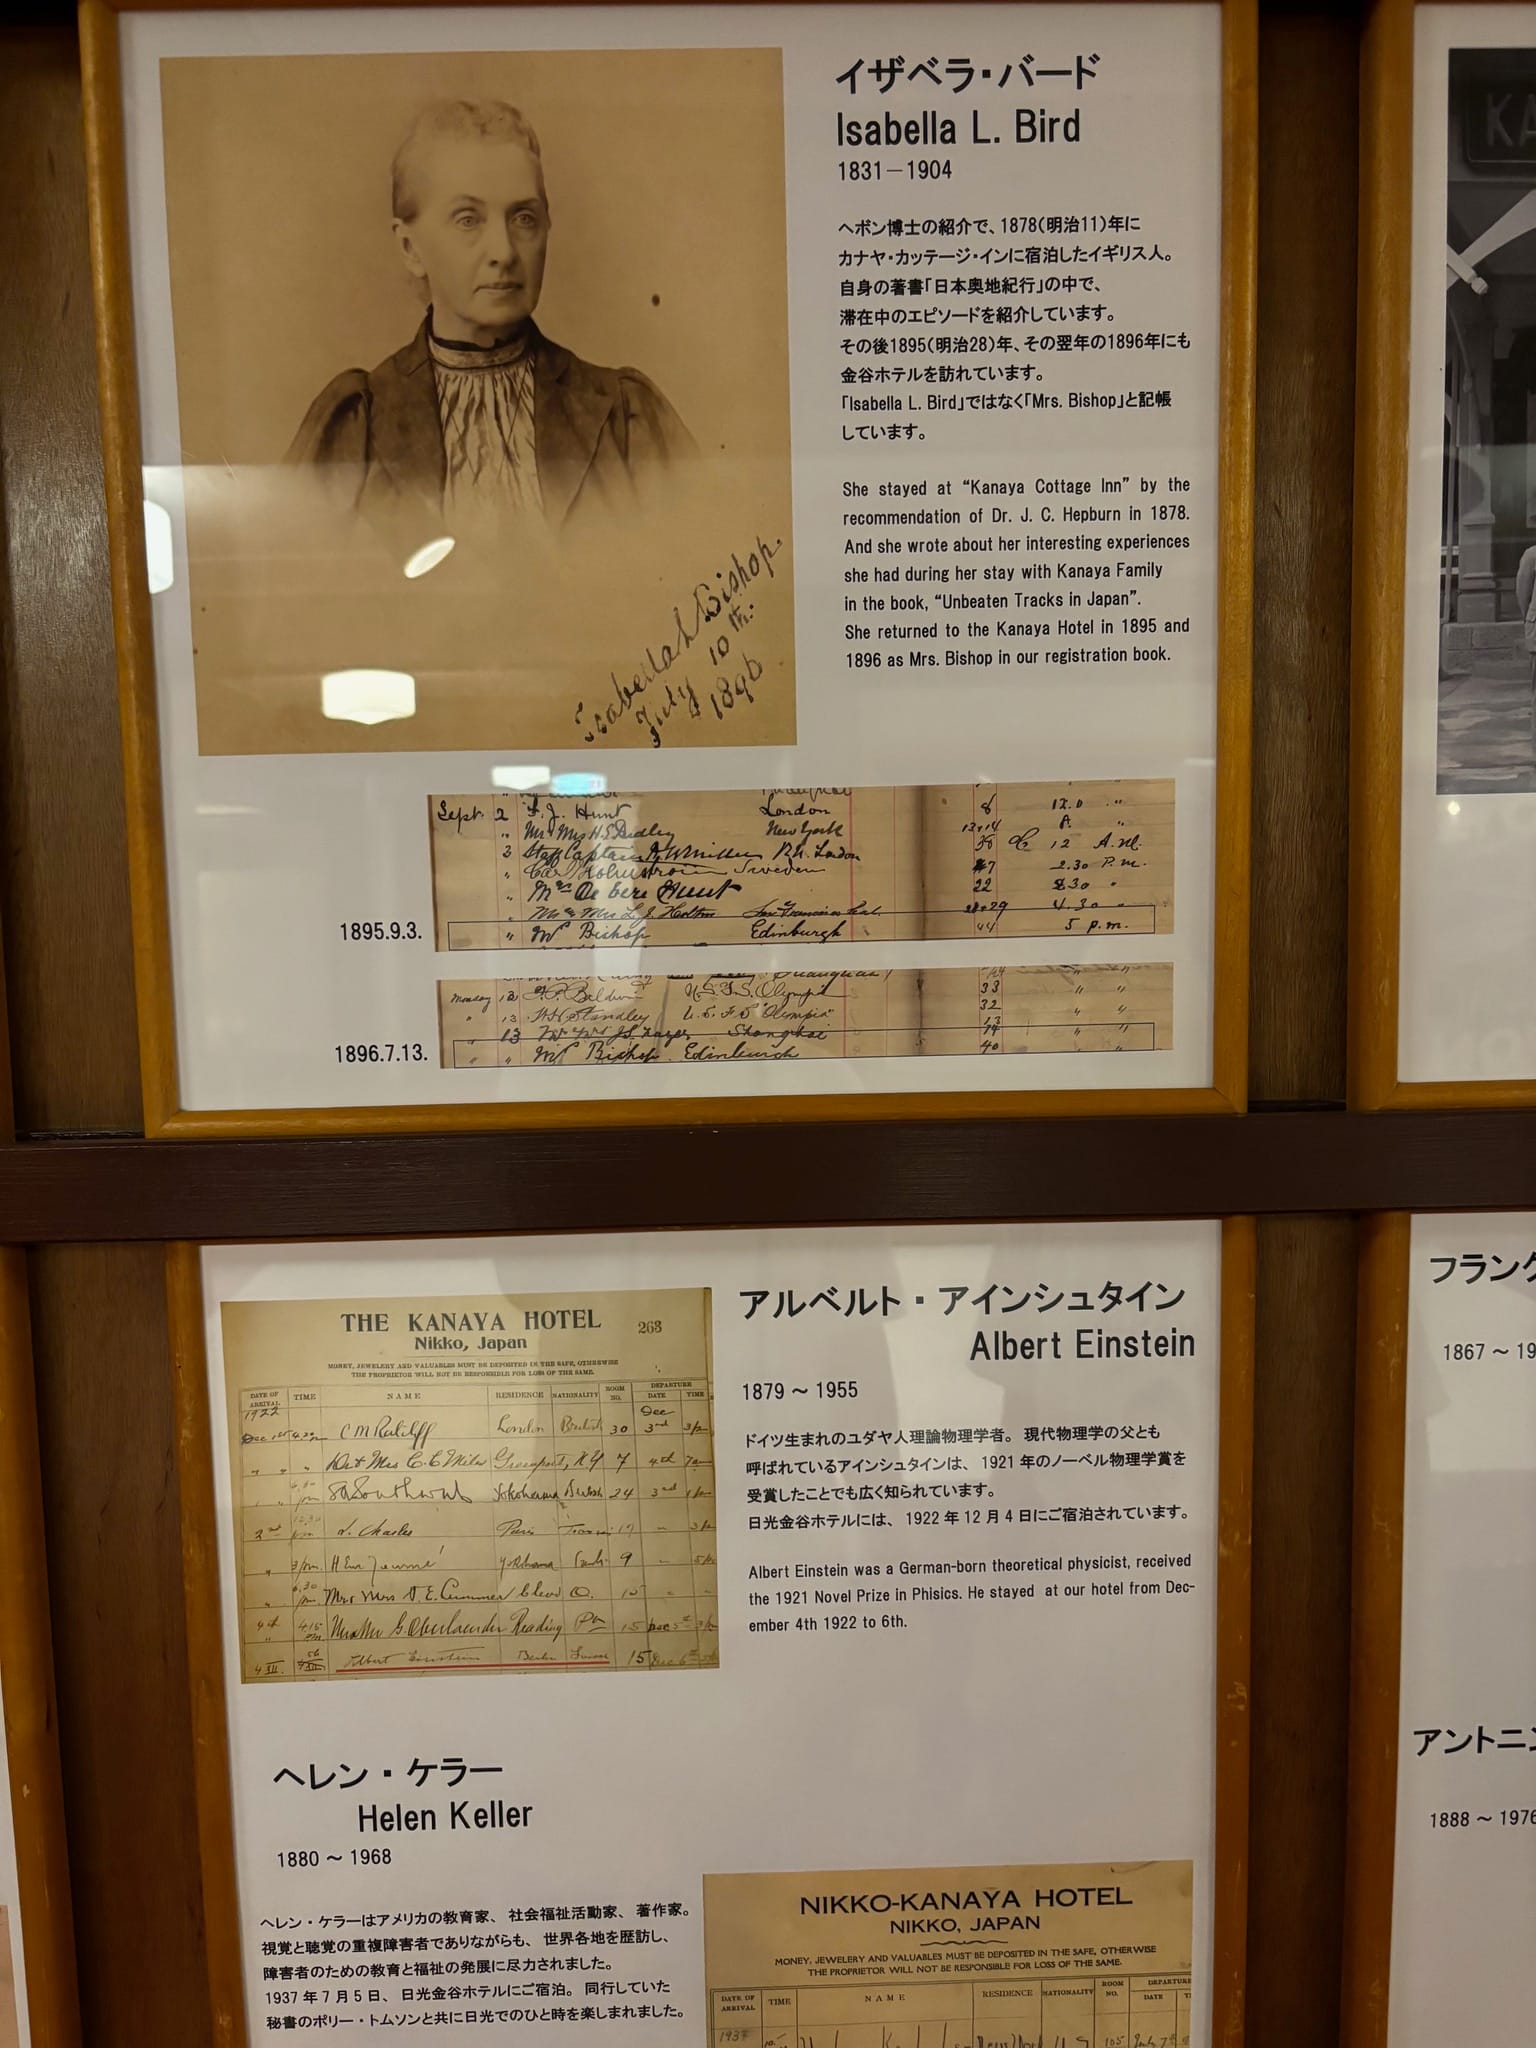 イザベラ・バード
Isabella L. Bird
1831－1904
ヘボン博士の紹介で、1878(明治11)年に
カナヤ・カッテージ・インに宿泊したイギリス人。
自身の著書「日本奥地紀行」の中で、
滞在中のエピソードを紹介しています。
その後1895(明治28)年、その翌年の1896年にも
金谷ホテルを訪れています。
「Isabella L. Bird」ではなく「Mrs. Bishop」と記帳
しています。
She stayed at “Kanaya Cottage Inn” by the
recommendation of Dr. J. C. Hepburn in 1878.
And she wrote about her interesting experiences
she had during her stay with Kanaya Family
in the book, “Unbeaten Tracks in Japan”.
She returned to the Kanaya Hotel in 1895 and
1896 as Mrs. Bishop in our registration book.
Bishop.
July 10th.
1896
Sept. 2 Hunt London 8 12.0 "
New York 13+14 8. "
3 Staff Captain London 12 A.M.
" Sweden 7 2.30 P.M.
" Hunt 22
" 4.30 "
1895.9.3.
" Bishop Edinburgh 44 5 p.m.
Monday 12 Baldwin Olympia 33 " "
" 13 Standley "Olympia" 32 " "
" 13 Shanghai " "
1896.7.13.
" " Bishop. Edinburgh 40 " "
THE KANAYA HOTEL 263
Nikko, Japan
MONEY, JEWELERY AND VALUABLES MUST BE DEPOSITED IN THE SAFE, OTHERWISE
THE PROPRIETOR WILL NOT BE RESPONSIBLE FOR LOSS OF THE SAME.
DATE OF ARRIVAL TIME NAME RESIDENCE NATIONALITY ROOM NO. DEPARTURE DATE TIME
1922 Dec
Dec 1st C M Ratcliff London British 30 3rd
" " " 7 4th
Yokohama British 24 3rd
2nd Charles Paris 17 "
" Yokohama 9 "
" 15 "
4th 4.15 Oberlaender Reading Pa 15 Dec 5th
4 XII. Albert Einstein Berlin 15 Dec 6th
アルベルト・アインシュタイン
Albert Einstein
1879 ～ 1955
ドイツ生まれのユダヤ人理論物理学者。 現代物理学の父とも
呼ばれているアインシュタインは、 1921 年のノーベル物理学賞を
受賞したことでも広く知られています。
日光金谷ホテルには、 1922 年 12 月 4 日にご宿泊されています。
Albert Einstein was a German-born theoretical physicist, received
the 1921 Novel Prize in Phisics. He stayed at our hotel from Dec-
ember 4th 1922 to 6th.
ヘレン・ケラー
Helen Keller
1880 ～ 1968
ヘレン・ケラーはアメリカの教育家、 社会福祉活動家、 著作家。
視覚と聴覚の重複障害者でありながらも、 世界各地を歴訪し、
障害者のための教育と福祉の発展に尽力されました。
1937 年 7 月 5 日、 日光金谷ホテルにご宿泊。 同行していた
秘書のポリー・トムソンと共に日光でのひと時を楽しまれました。
NIKKO-KANAYA HOTEL
NIKKO, JAPAN
MONEY, JEWELERY AND VALUABLES MUST BE DEPOSITED IN THE SAFE, OTHERWISE
THE PROPRIETOR WILL NOT BE RESPONSIBLE FOR LOSS OF THE SAME.
DATE OF ARRIVAL TIME NAME RESIDENCE NATIONALITY ROOM NO. DEPARTURE DATE
1937 105 July 7th
KA
フランク
1867 ～ 19
アントニン
1888 ～ 1976